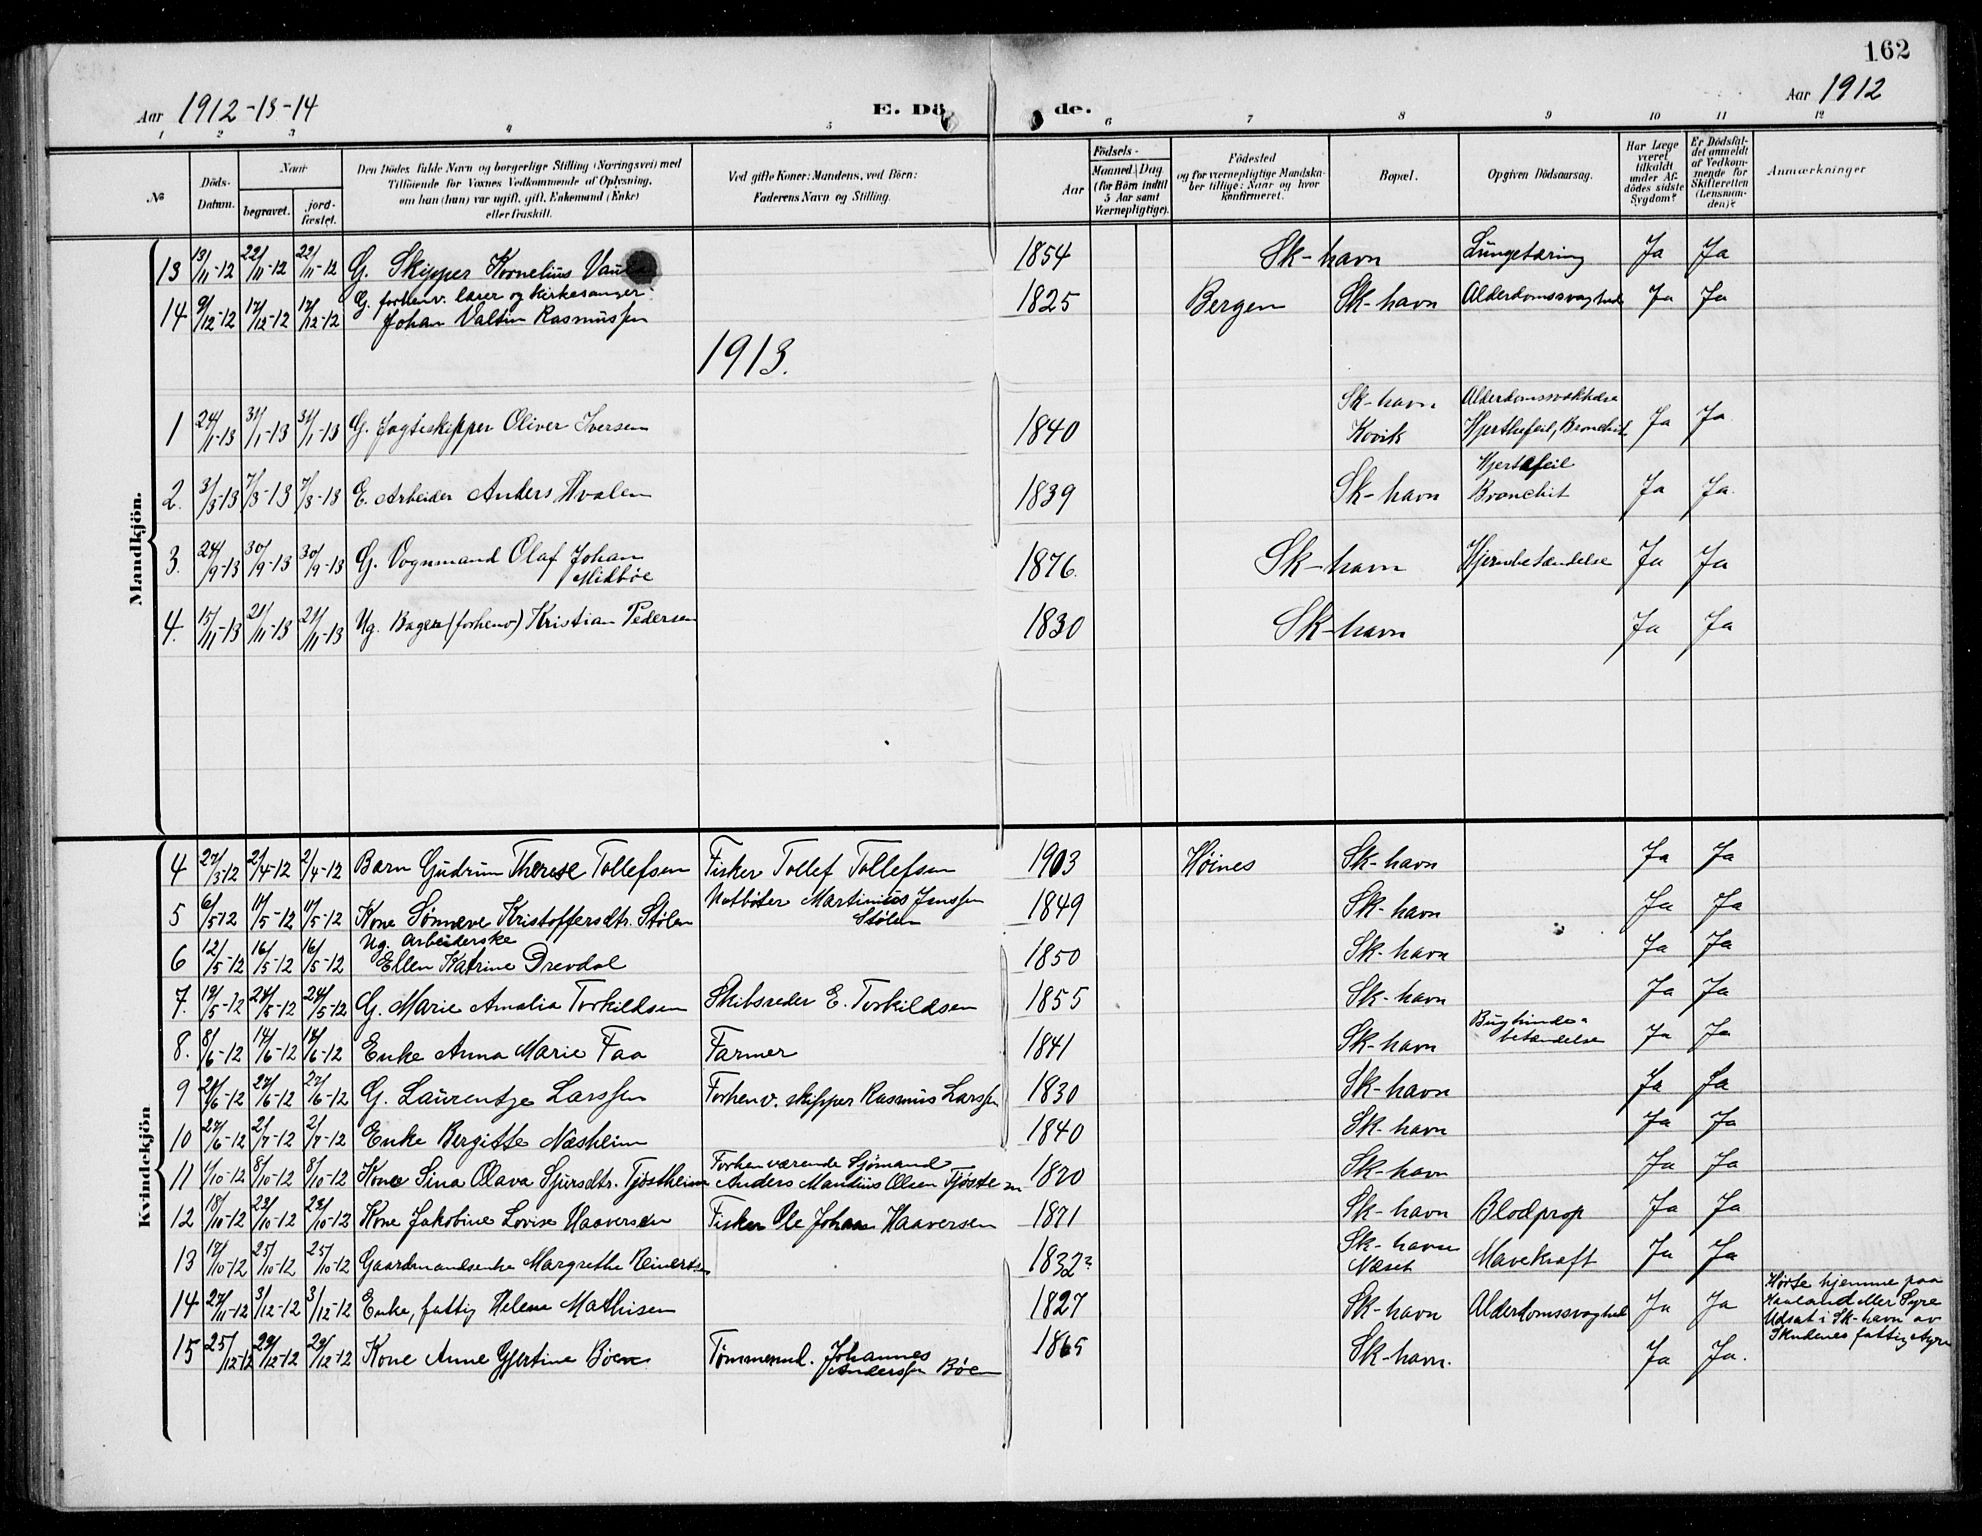 162
Aar 1912-13-14
E. Dö de.
Aar 1912
1 2 3 4 5 6 7 8 9 10 11 12
№
Döds-Datum.
Naar
begravet.
jord-fæstet.
Den Dödes fulde Navn og borgerlige Stilling (Næringsvei) med
Tilföiende for Voxnes Vedkommende af Oplysning,
om han (hun) var ugift, gift, Enkemand (Enke)
eller fraskilt.
Ved gifte Koner: Mandens, ved Börn:
Faderens Navn og Stilling.
Födsels-
Aar
Maaned. Dag.
(for Börn indtil
5 Aar samt
Værnepligtige).
Födested
og for værnepligtige Mandska-
ber tillige: Naar og hvor
konfirmeret.
Bopæl.
Opgiven Dödsaarsag.
Har Læge
været
tilkaldt
under Af-
dödes sidste
Sygdom?
Er Dödsfal-
det anmeldt
af Vedkom-
mende for
Skifteretten
(Lensman-
den)?
Anmærkninger
Mandkjön.
13 13/11-12 22/11-12 22/11-12 G. Skipper Kornelius 1854 Sk-havn Lungetæring Ja Ja
14 9/12-12 17/12-12 17/12-12 G. forhenv. lærer og kirkesanger Johan Valtin Rasmussen 1825 Bergen Sk-havn Alderdomssvaghed Ja Ja
1913.
1 24/1-13 31/1-13 31/1-13 G. Jagtskipper Oliver Iversen 1840 Sk-havn Kovik Hjertefeil, Bronchit Ja Ja
2. 3/3-13 7/3-13 7/3-13 E. Arbeider Anders Hvalen 1839 Sk-havn Hjertefeil Bronchit Ja Ja.
3. 24/9-13 30/9-13 30/9-13 G. Vognmand Olaf Johan Midbøe 1876. Sk-havn Hjernebetændelse Ja Ja
4. 15/11-13 21/11-13 21/11-13 Ug. Bager (forhenv) Kristian Pedersen 1830 Sk-havn Ja Ja
Kvindekjön
4 27/3-12 2/4-12 2/4-12 Barn Gudrun Therese Tollefsen Fisker Tollef Tollefsen 1903 Høines Sk-havn Ja Ja
5 6/5-12 11/5-12 11/5-12 Kone Sønneve Kristoffersdtr. Stølen Notbøter Martinius Jenssen Stølen 1849 Sk-havn Ja Ja
6 12/5-12 16/5-12 16/5-12 Ug. Arbeiderske Ellen Katrine Drevdal 1850 Sk-havn Ja Ja
7. 19/5-12 24/5-12 24/5-12 G. Marie Amalia Torkildsen Skibsreder E. Torkildsen 1855 Sk-havn Ja Ja
8. 8/6-12 14/6-12 14/6-12 Enke Anna Marie Faa Farmer 1841 Sk-havn Bughinde-betændelse Ja Ja
9 21/6-12 27/6-12 27/6-12 G. Laurentze Larssen Forhenv. skipper Rasmus Larssen 1830 Sk-havn Ja Ja
10 27/6-12 2/7-12 2/7-12 Enke Bergitte Næsheim 1840 Sk-havn Ja Ja
11 1/10-12 8/10-12 8/10-12 Kone Sina Olava Sjursdtr. Tjøstheim Forhenværende Sjømand Anders Mandius Olsen 1870 Sk-havn Ja Ja
12 18/10-12 23/10-12 23/10-12 Kone Jakobine Lovise Haaversen Fisker Ole Johan Haaversen 1871 Sk-havn Blodprop Ja Ja
13 17/10-12 25/10-12 25/10-12 Gaardmandsenke Margrethe Reinertsen 1832? Sk-havn Næset Mavekræft Ja Ja
14 27/11-12 3/12-12 3/12-12 Enke, fattig Helene Mathisen 1827 Sk-havn Alderdomssvaghed Ja Ja Hørte hjemme paa
Haaland eller Syre
Udsat i Sk-havn av
Skudenes fattig
15 25/12-12 29/12-12 29/12-12 Kone Anne Gjertine Bøen Tømmermd. Johannes Anderssen Bøen 1865 Sk-havn. Ja Ja.